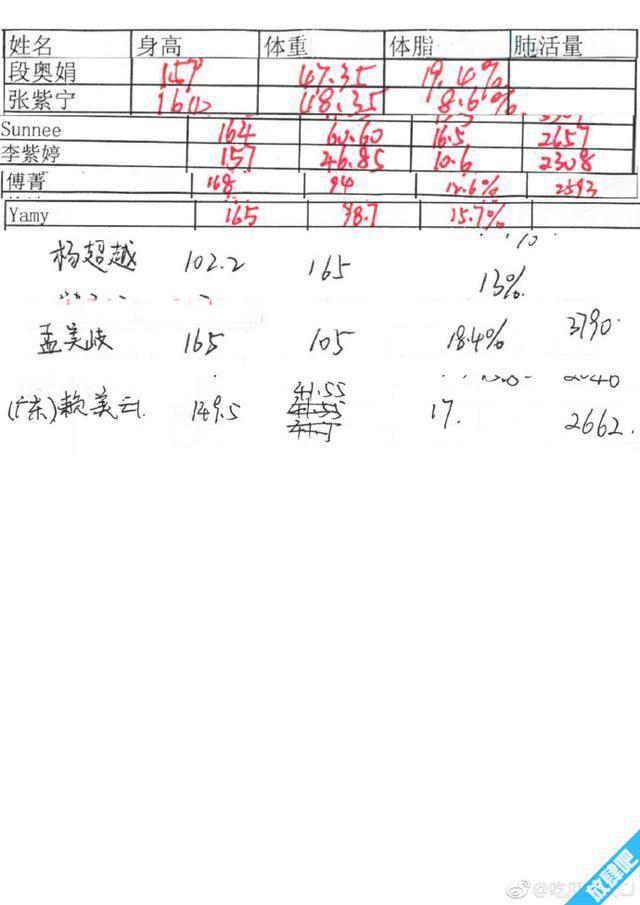 姓名 身高 体重 体脂 肺活量
段奥娟 157 47.35 19.4%
张紫宁 160 48.35 8.6%
Sunnee 164 60.60 16.5 2657
李紫婷 157 46.85 10.6 2308
傅菁 168 94 12.6% 2593
Yamy 165 98.7 15.7%
杨超越 102.2 165 13%
孟美岐 165 105 18.4% 3790
41.55
(广东)赖美云 149.5 41.55 17. 2662.
放肆吧